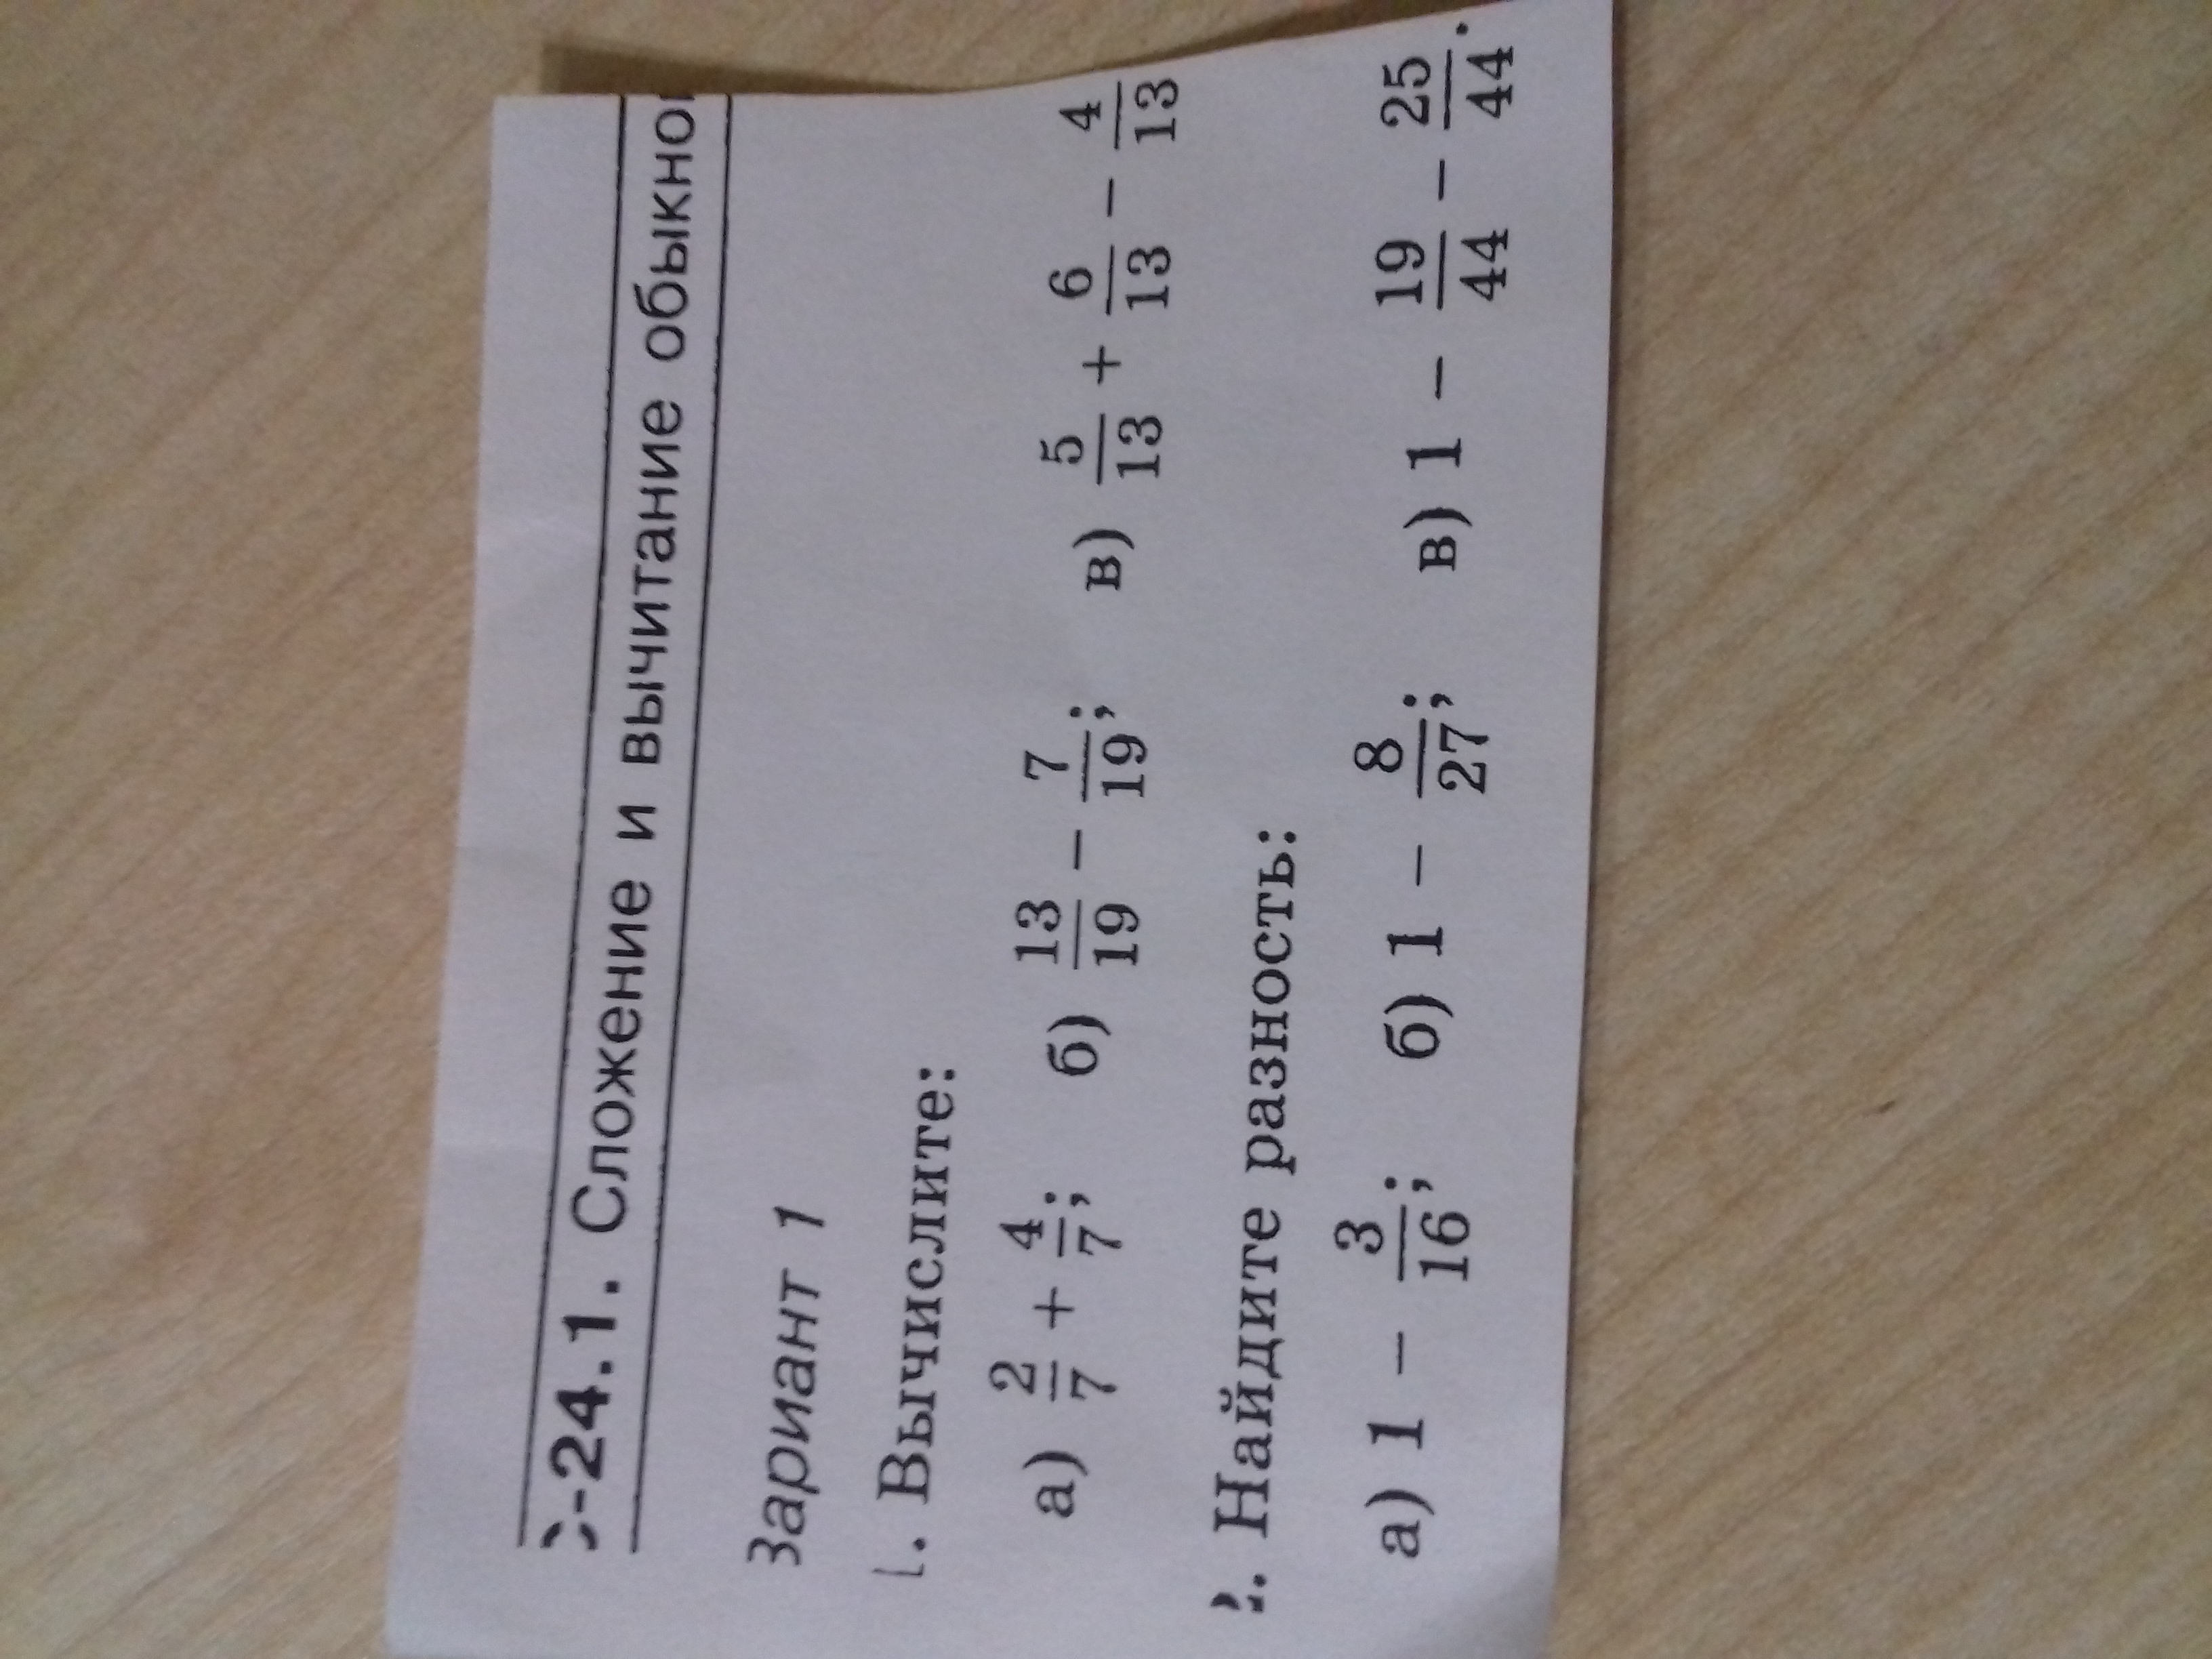 С-24.1. Сложение и вычитание обыкно
Вариант 1
1. Вычислите:
а) 2/7 + 4/7; б) 13/19 − 7/19; в) 5/13 + 6/13 − 4/13
2. Найдите разность:
а) 1 − 3/16; б) 1 − 8/27; в) 1 − 19/44 − 25/44.